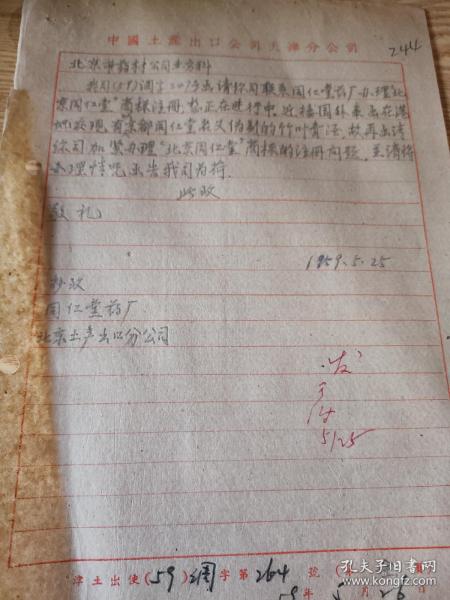 中國土產出口公司天津分公司
244
北京市药材公司业务科
我司(59)调字207号函请你司联系同仁堂药厂办理"北
京同仁堂"商标注册,想正在进行中,近接国外来函在港
地发现有京都同仁堂名义伪制的竹叶青酒,故再函请
你司加紧办理"北京同仁堂"商标的注册问题,并请将
办理情况函告我司为荷.
此致
敬礼
1959.5.25
抄致
同仁堂药厂
北京土产出口分公司
发
5/25
津土出使(59)调字第264號
59年5月26日
孔夫子旧书网